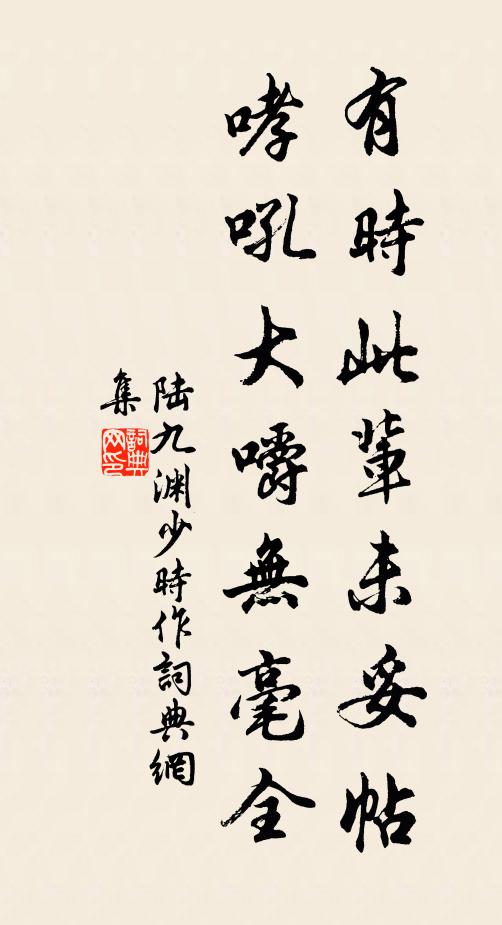 有時此輩未妥帖
哮吼大嚼無毫全
陆九渊少時作詞典網
集
詞典
网印